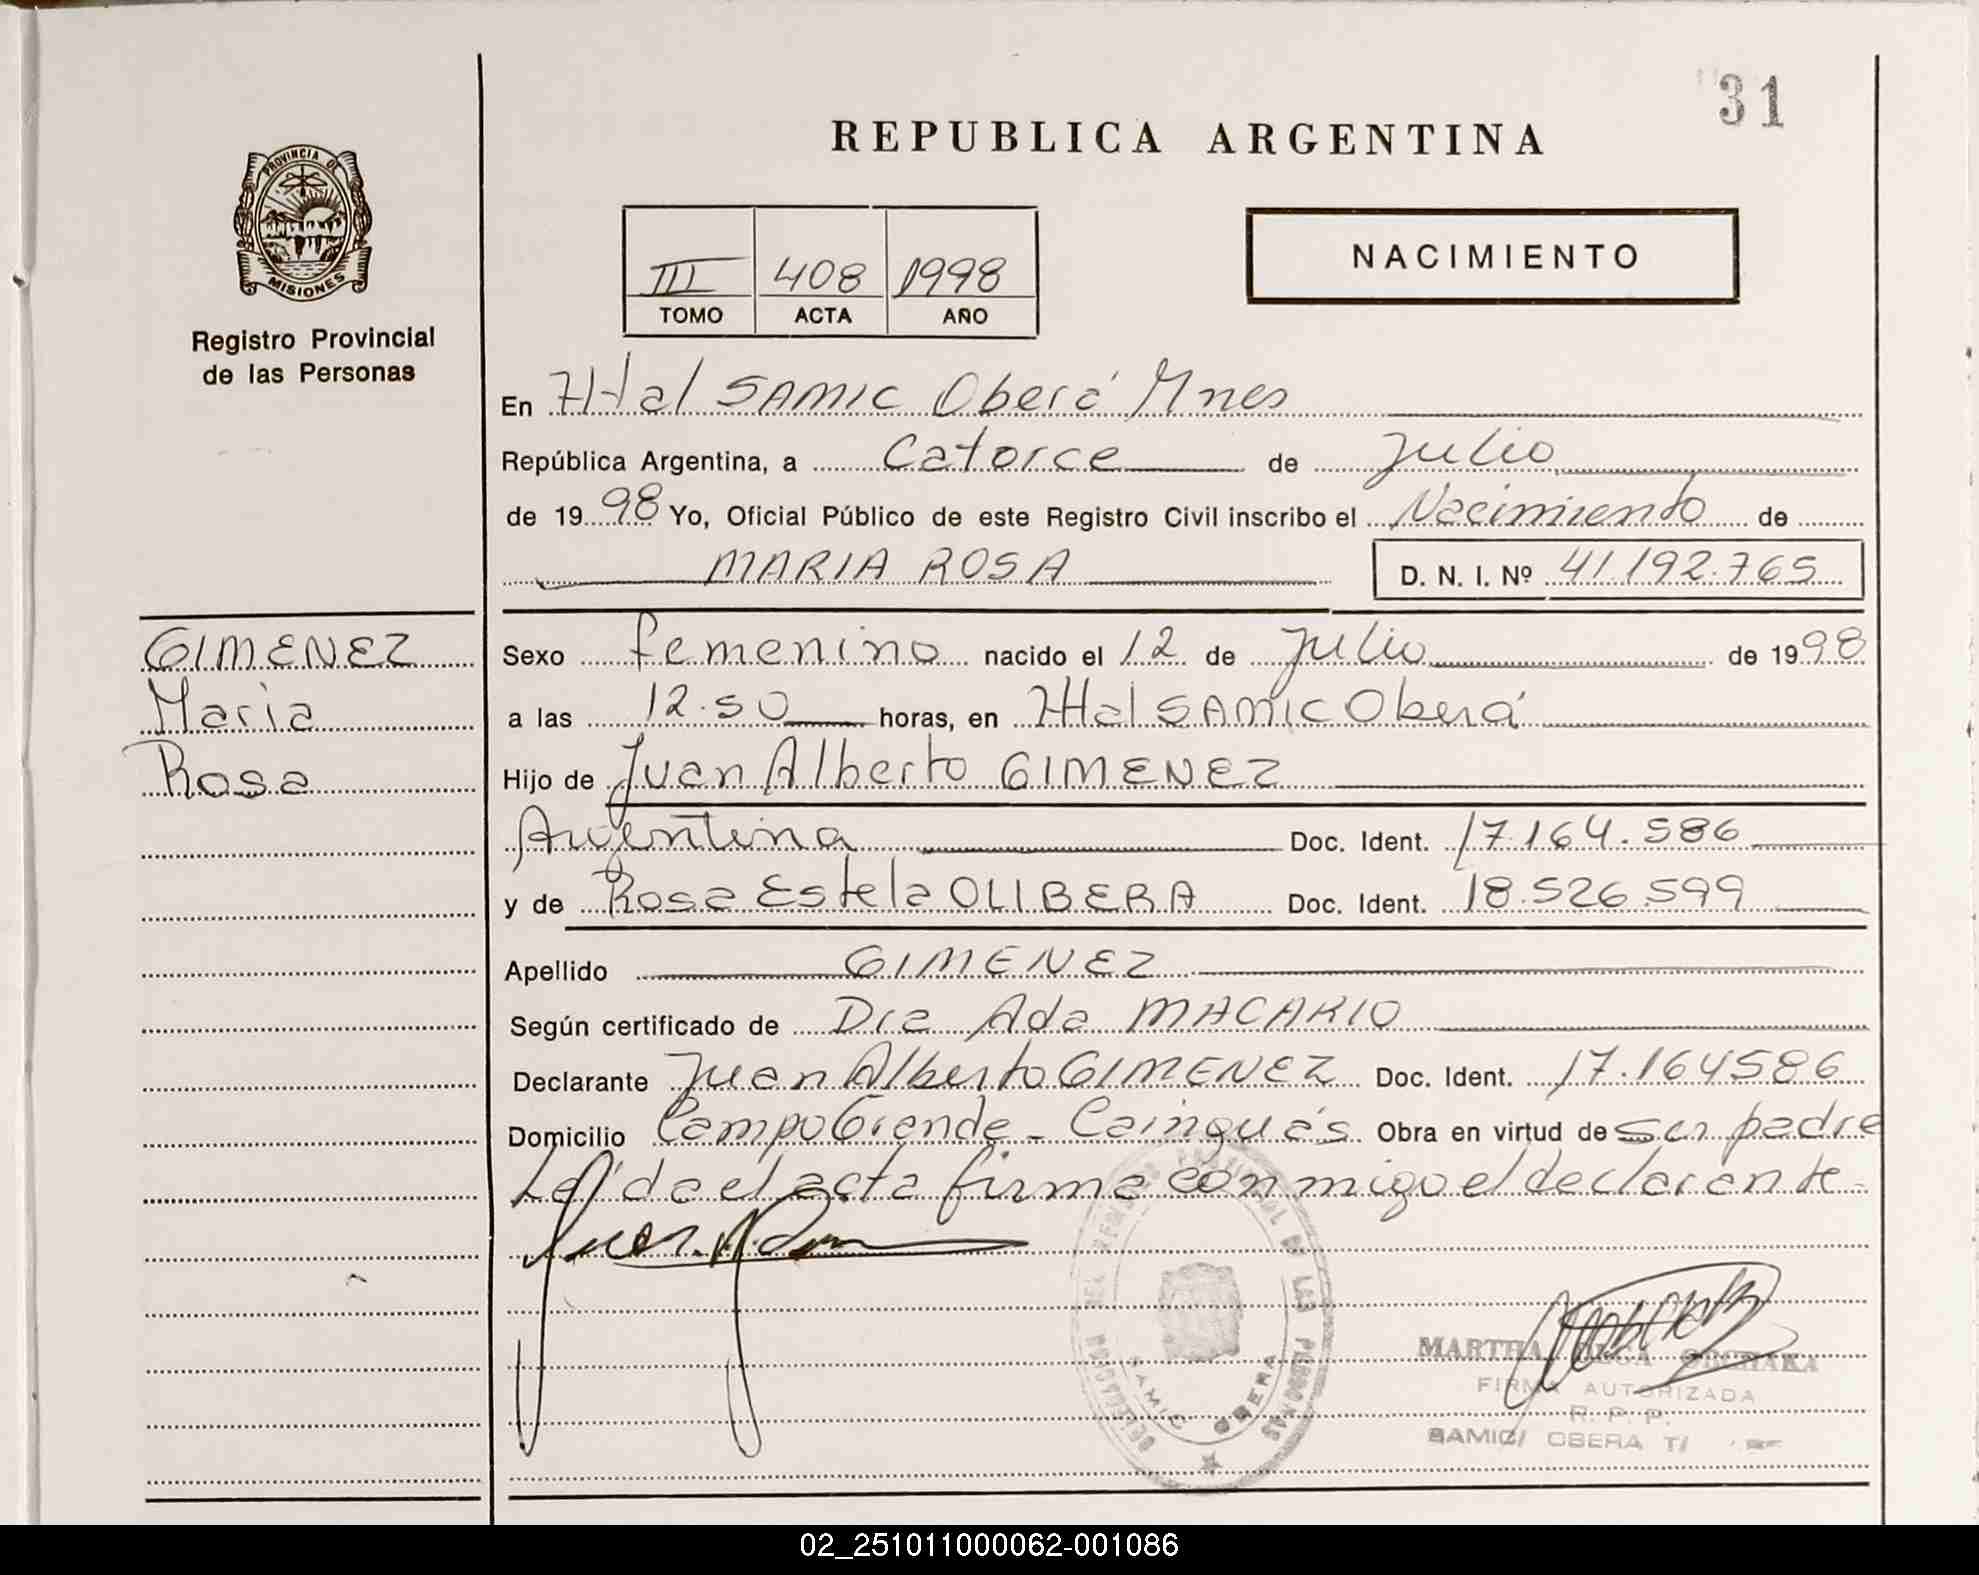 31
REPUBLICA ARGENTINA
PROVINCIA DE
MISIONES
Registro Provincial
de las Personas
III 408 1998
TOMO ACTA AÑO
NACIMIENTO
En Htal SAMIC Oberá Mnes
República Argentina, a Catorce de Julio
de 1998 Yo, Oficial Público de este Registro Civil inscribo el Nacimiento de
MARIA ROSA D. N. I. Nº 41.192.765
GIMENEZ
Maria
Rosa
Sexo femenino nacido el 12 de Julio de 1998
a las 12.50 horas, en Htal SAMIC Oberá
Hijo de Juan Alberto GIMENEZ
Argentina Doc. Ident. 17.164.586
y de Rosa Estela OLIBERA Doc. Ident. 18.526.599
Apellido GIMENEZ
Según certificado de Dra Ada MACARIO
Declarante Juan Alberto GIMENEZ Doc. Ident. 17.164586
Domicilio Campo Grande - Cainguás Obra en virtud de ser padre
Leída el acta firma conmigo el declarante-
DELEGACION DEL REGISTRO PROVINCIAL DE LAS PERSONAS
SAMIC OBERA
MARTHA
FIRMA AUTORIZADA
R. P. P.
SAMIC/ OBERA T/
02_251011000062-001086